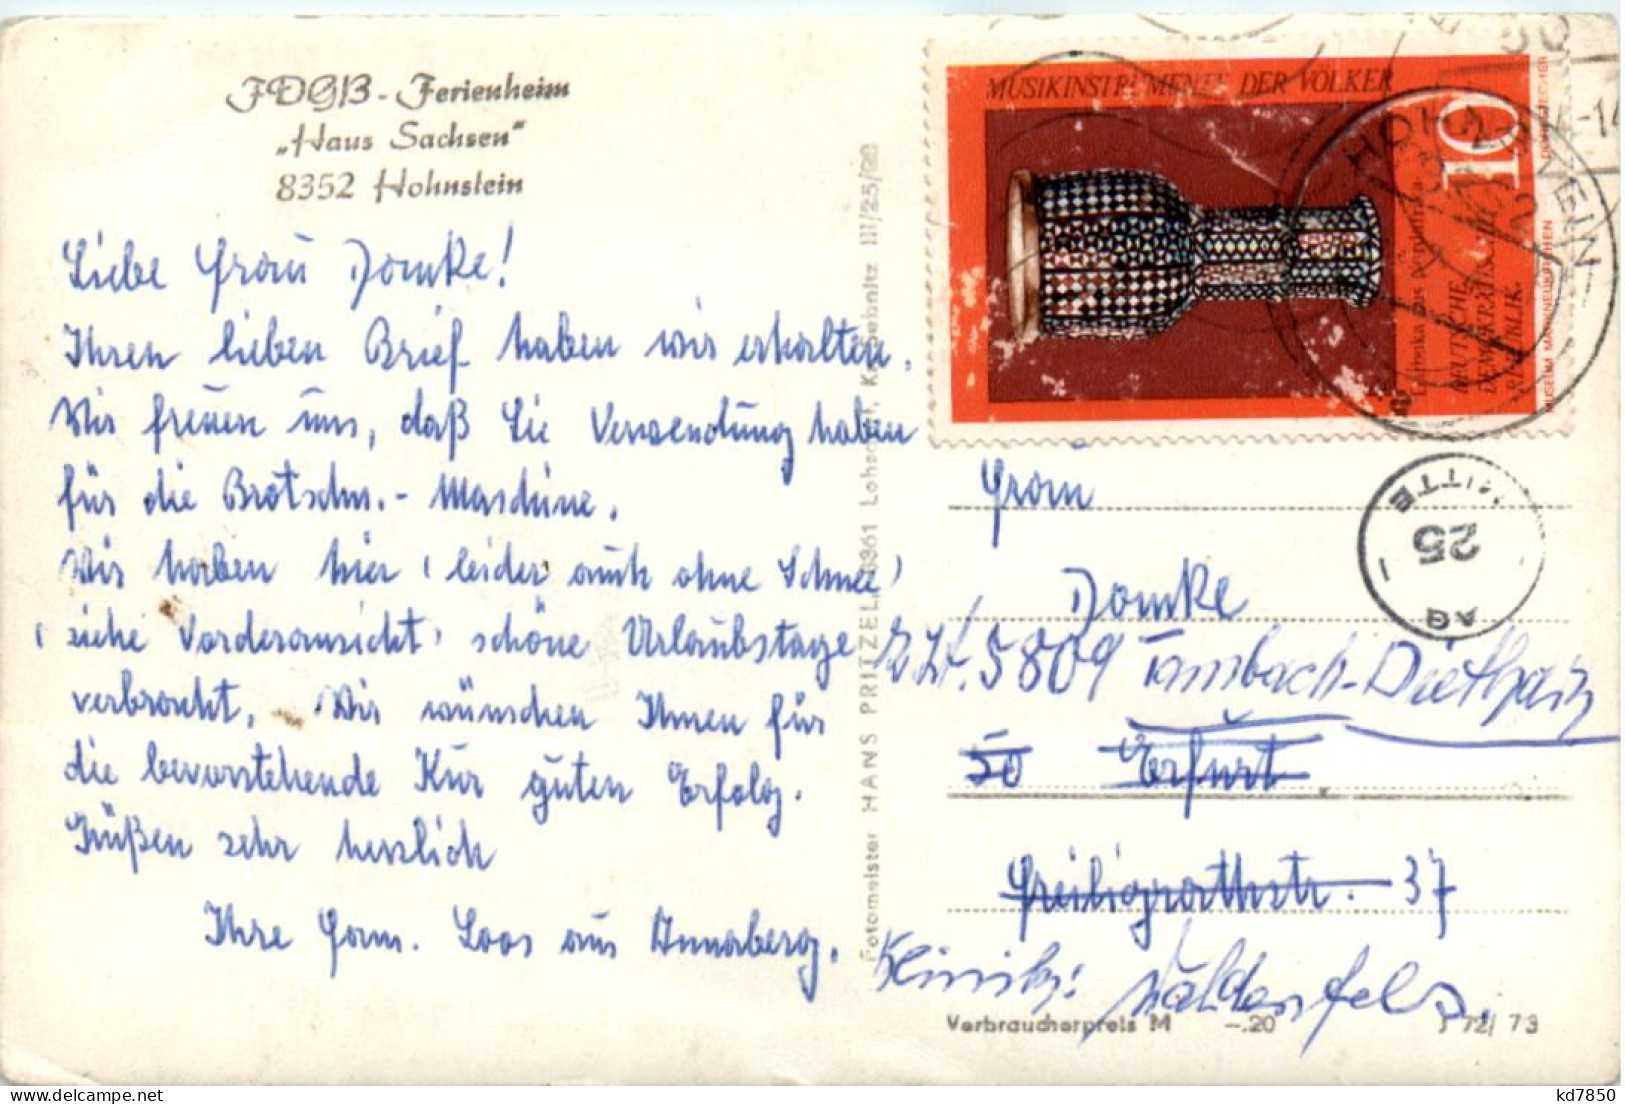 FDGB-Ferienheim
„Haus Sachsen“
8352 Hohnstein
Liebe Frau Domke!
Ihren lieben Brief haben wir erhalten.
Wir freuen uns, daß Sie Verwendung haben
für die Brotschn.- Maschine.
Wir haben hier (leider auch ohne Schnee)
(siehe Vorderansicht) schöne Urlaubstage
verbracht. Wir wünschen Ihnen für
die bevorstehende Kur guten Erfolg.
Grüßen sehr herzlich
Ihre Fam. Loos aus Annaberg.
Fotomeister HANS PRITZEL, 8361 Lohsdorf, Kr. Sebnitz III/25/
MUSIKINSTRUMENTE DER VÖLKER
10
DEUTSCHE
DEMOKRATISCHE
REPUBLIK
MUSEUM MARKNEUKIRCHEN
HOHNSTEIN
MITTE
25
AG
Frau
Domke
z.Zt. 5809 Tambach-Dietharz
50 Erfurt
Freiligrathstr. 37
Klinik: Waldenfels.
Verbraucherpreis M -.20 J 72/73
kd7850